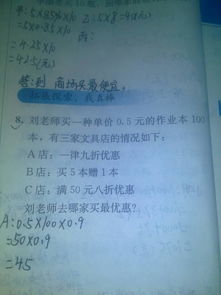 甲:5×85%×10 乙:5×8=40(元)
=5×0.85×10 丙:
=4.25×10
=42.5(元)
答:到 商场买最便宜。
8. 刘老师买一种单价 0.5 元的作业本 100
本,有三家文具店的情况如下:
A 店:一律九折优惠
B 店:买 5 本赠 1 本
C 店:满 50 元八折优惠
刘老师去哪家买最优惠?
A:0.5×100×0.9
=50×0.9
=45